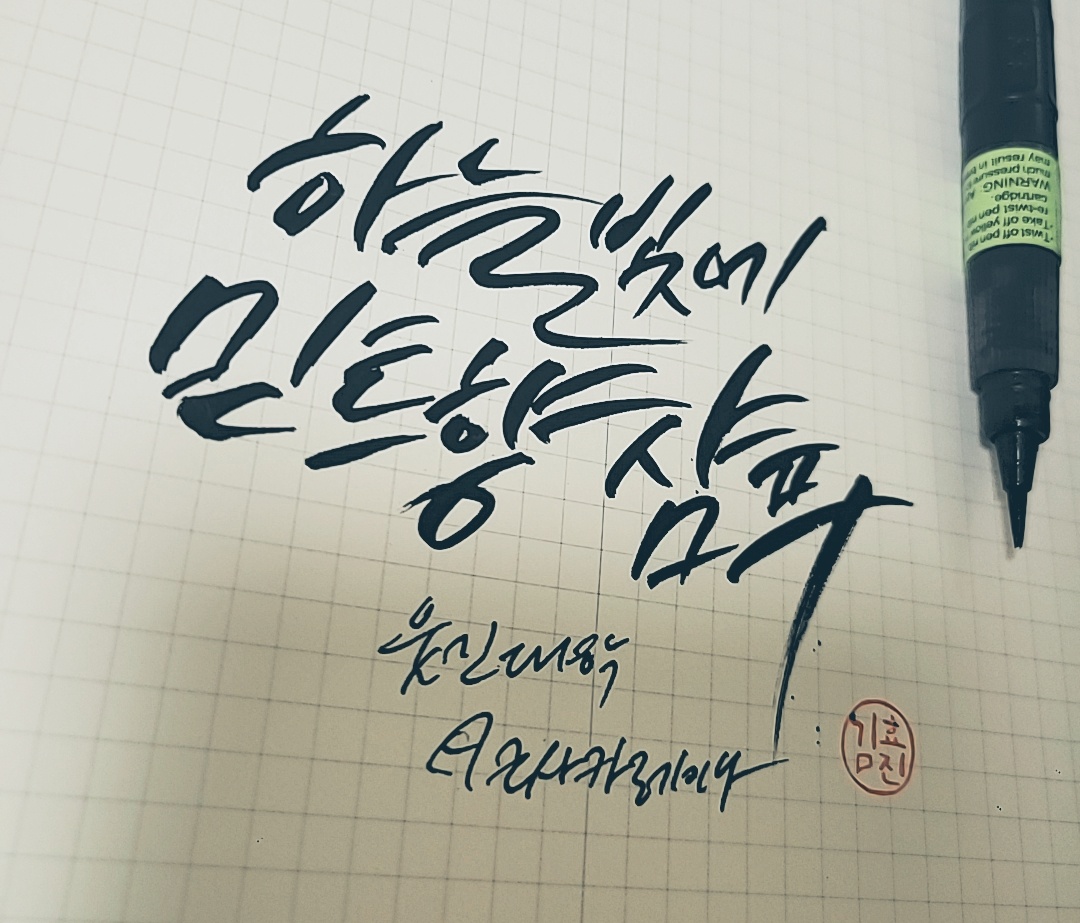 하늘빛에
민트향 샴푸
웃긴대학
코사카레이나
김효진
Twist off pen
Take off yellow
re-twist pen
cartridge.
WARNING:
much pressure
may result in